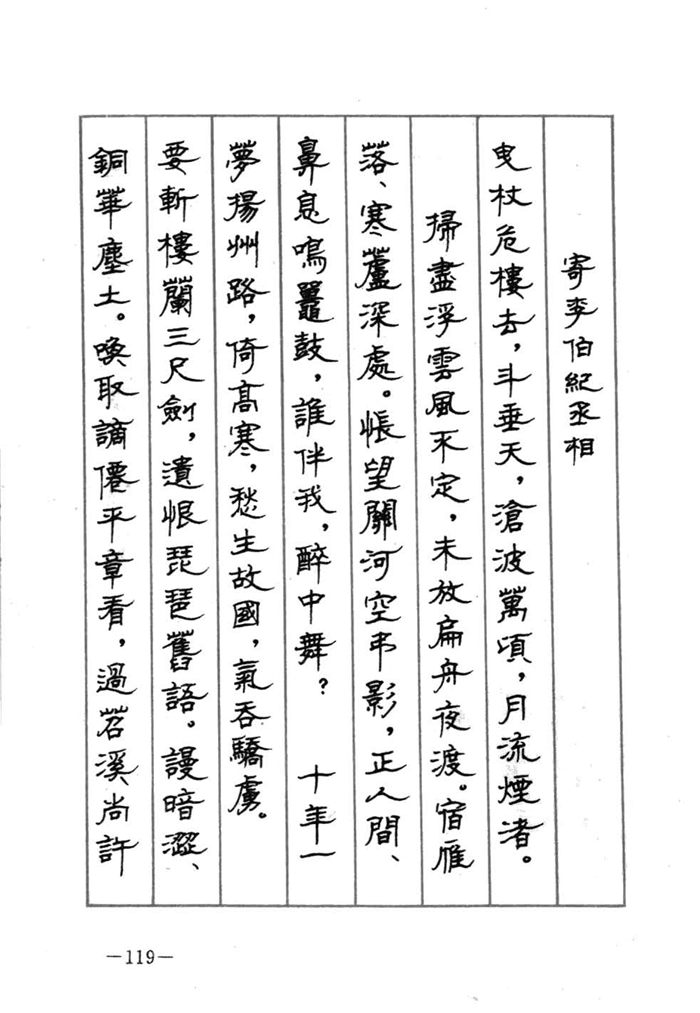 寄李伯紀丞相
曳杖危樓去，斗垂天，滄波萬頃，月流煙渚。
掃盡浮雲風不定，未放扁舟夜渡。宿雁
落、寒蘆深處。悵望關河空弔影，正人間、
鼻息鳴鼉鼓，誰伴我，醉中舞？　十年一
夢揚州路，倚高寒，愁生故國，氣吞驕虜。
要斬樓蘭三尺劍，遺恨琵琶舊語。謾暗澀、
銅華塵土。喚取謫僊平章看，過苕溪尚許
—119—